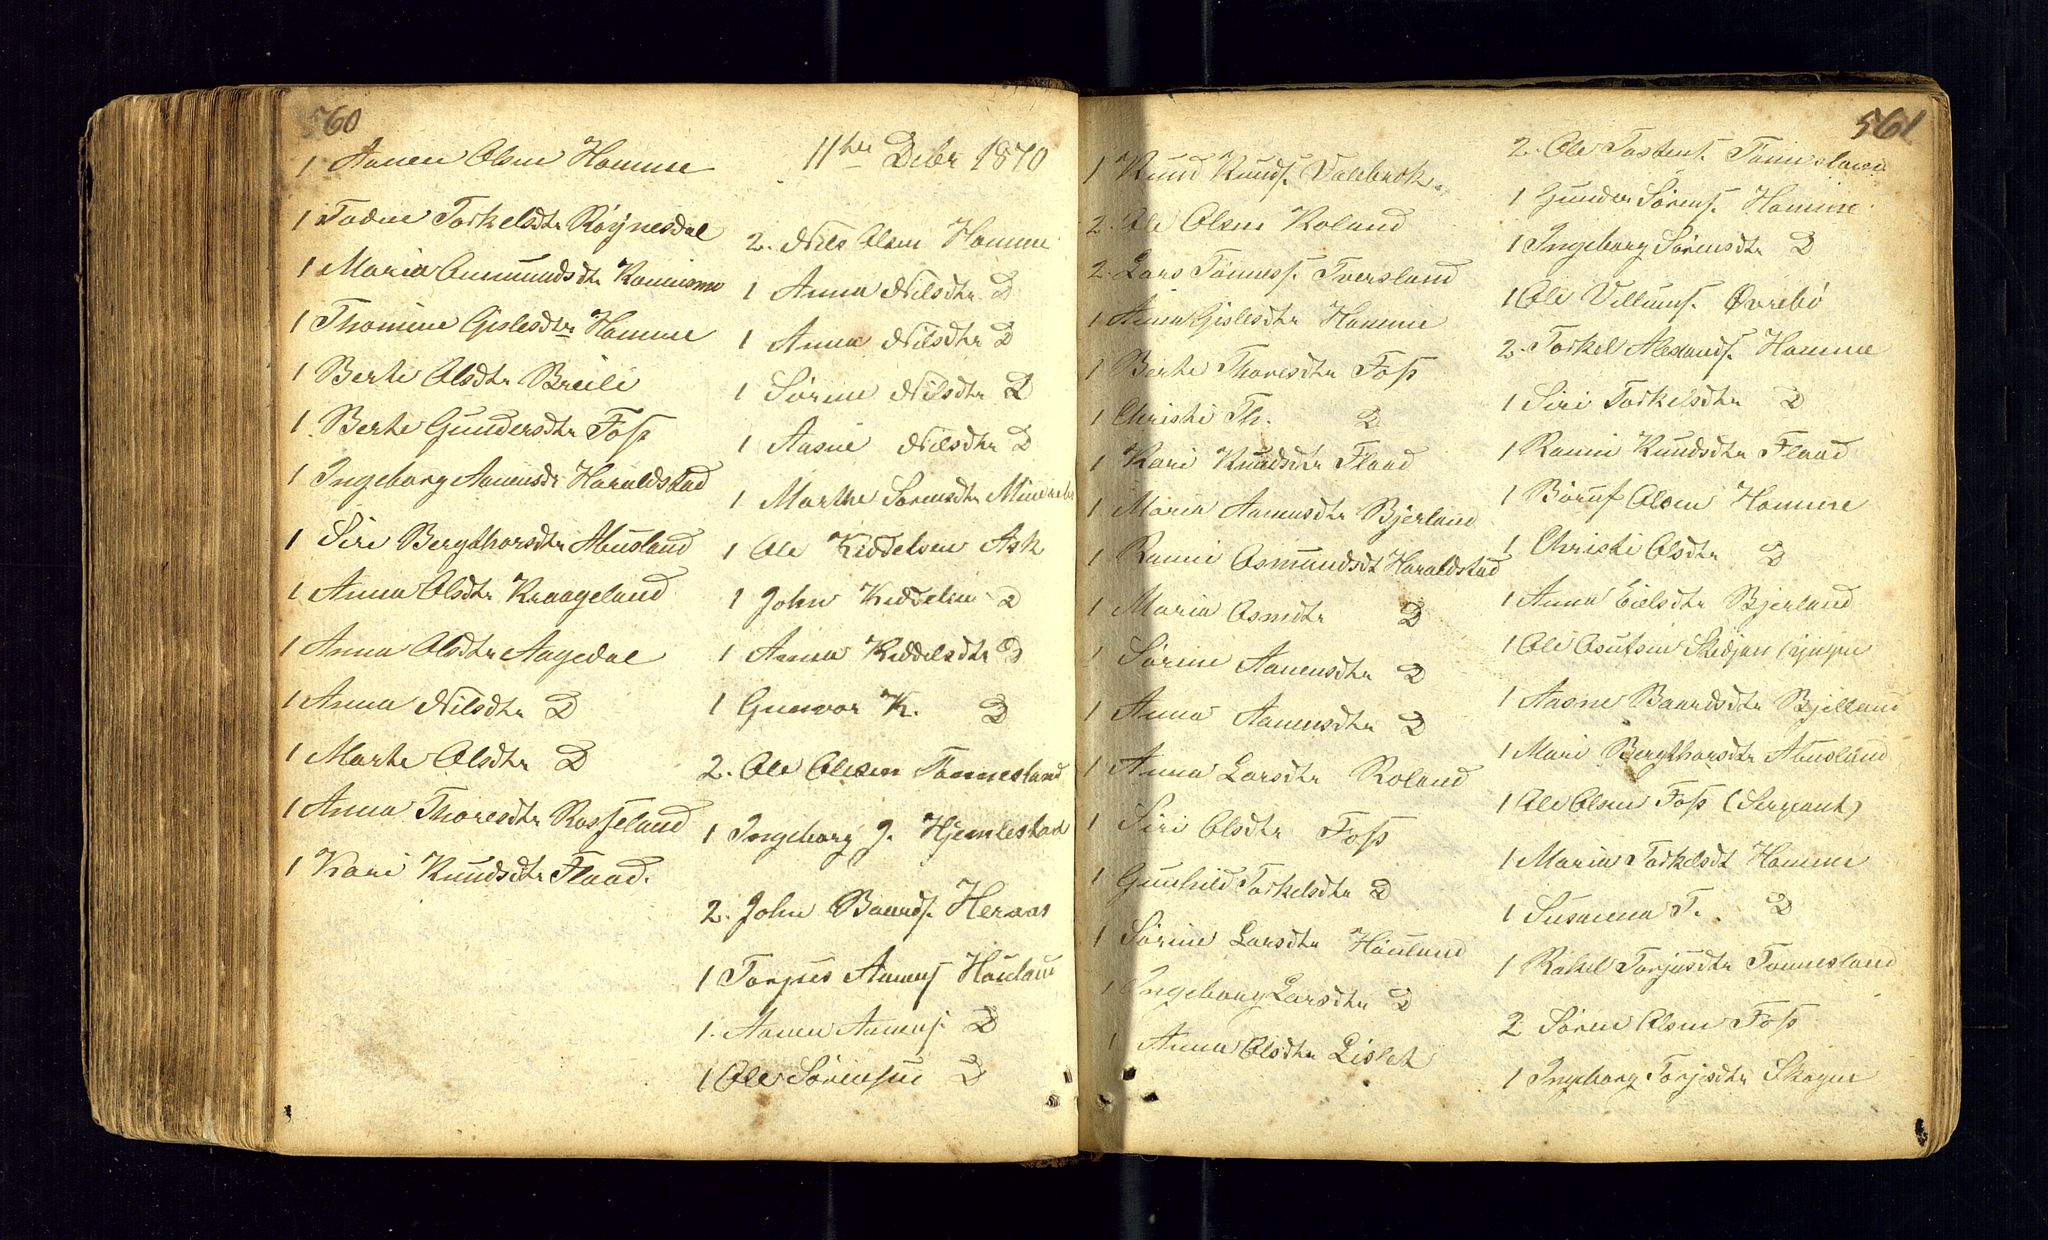 560
1 Aanen Olsen Homme
1 Todne Torkelsdtr Røynesdal
1 Maria Aanundsdtr
1 Thomine Gislesdtr Homme
1 Berte Olsdtr Breili
1 Berte Gundersdtr Foss
1 Ingeborg Aanensdt Haraldstad
1 Siri Bergthorsdtr Abusland
1 Anna Olsdtr Kraageland
1 Anna Olsdtr Aagedal
1 Anna Nilsdtr D
1 Marte Olsdtr D
1 Anna Thoresdtr Rosseland
1 Kari Knudsdtr Flaad.
11te Decbr 1870
2. Nils Olsen Homme
1 Anna Nilsdtr D
1 Anna Nilsdtr D
1 Sørine Nilsdtr D
1 Aasne Nilsdtr D
1 Marthe Sørensdtr
1 Ole Kiddelsen Ask
1 John Kiddelsen D
1 Anna Kiddelsdtr D
1 Gunvor K. D
2. Ole Olesen Tønnesland
1 Ingeborg J. Hjemlestad
2. John Baards. Heraas
1 Torjus Aanens Houland
1. Aanen Aanens. D
1 Ole Sørensen D
561
1 Knud Knuds. Valebrok.
2. Ole Olsen Roland
2. Lars Tønness. Tversland
1 Anna Gislesdtr Homme
1 Berte Thoresdtr Foss
1 Christi Th. D
1 Kari Knudsdtr Flaad
1 Maria Aanensdtr Bjerland
1 Ranni Osmundsdt Haraldstad
1 Maria Osmdtr D
1 Sørine Aanensdtr D
1 Anna Aanensdtr D
1 Anna Larsdtr Roland
1 Siri Olsdtr Foss
1 Gunhild Torkelsdtr D
1 Sørine Larsdtr Houland
1 Ingeborg Larsdtr D
1 Anna Olsdtr Lislet
2. Ole Tostens. Tønnesland
1 Gunder Sørens. Homme
1 Ingeborg Sørensdtr D
1 Ole Villums. Øvrebø
2. Torkel Alexands. Homme
1 Siri Torkelsdtr D
1 Ranni Knudsdtr Flaad
1 Børuf Olsen Homme
1 Christi Olsdtr D
1 Anna Eielsdtr Bjerland
1 Ole Osufsen
1 Aasne Baardsdtr Bjelland
1 Mari Bergthorsdtr Abusland
1 Ole Olsen Foss (Sergeant)
1 Maria Torkelsdt Homme
1 Susanna T. D
1 Rakel Torjusdtr Tønnesland
2 Søren Olsen Foss
1 Ingeborg Torjusdtr Skagen